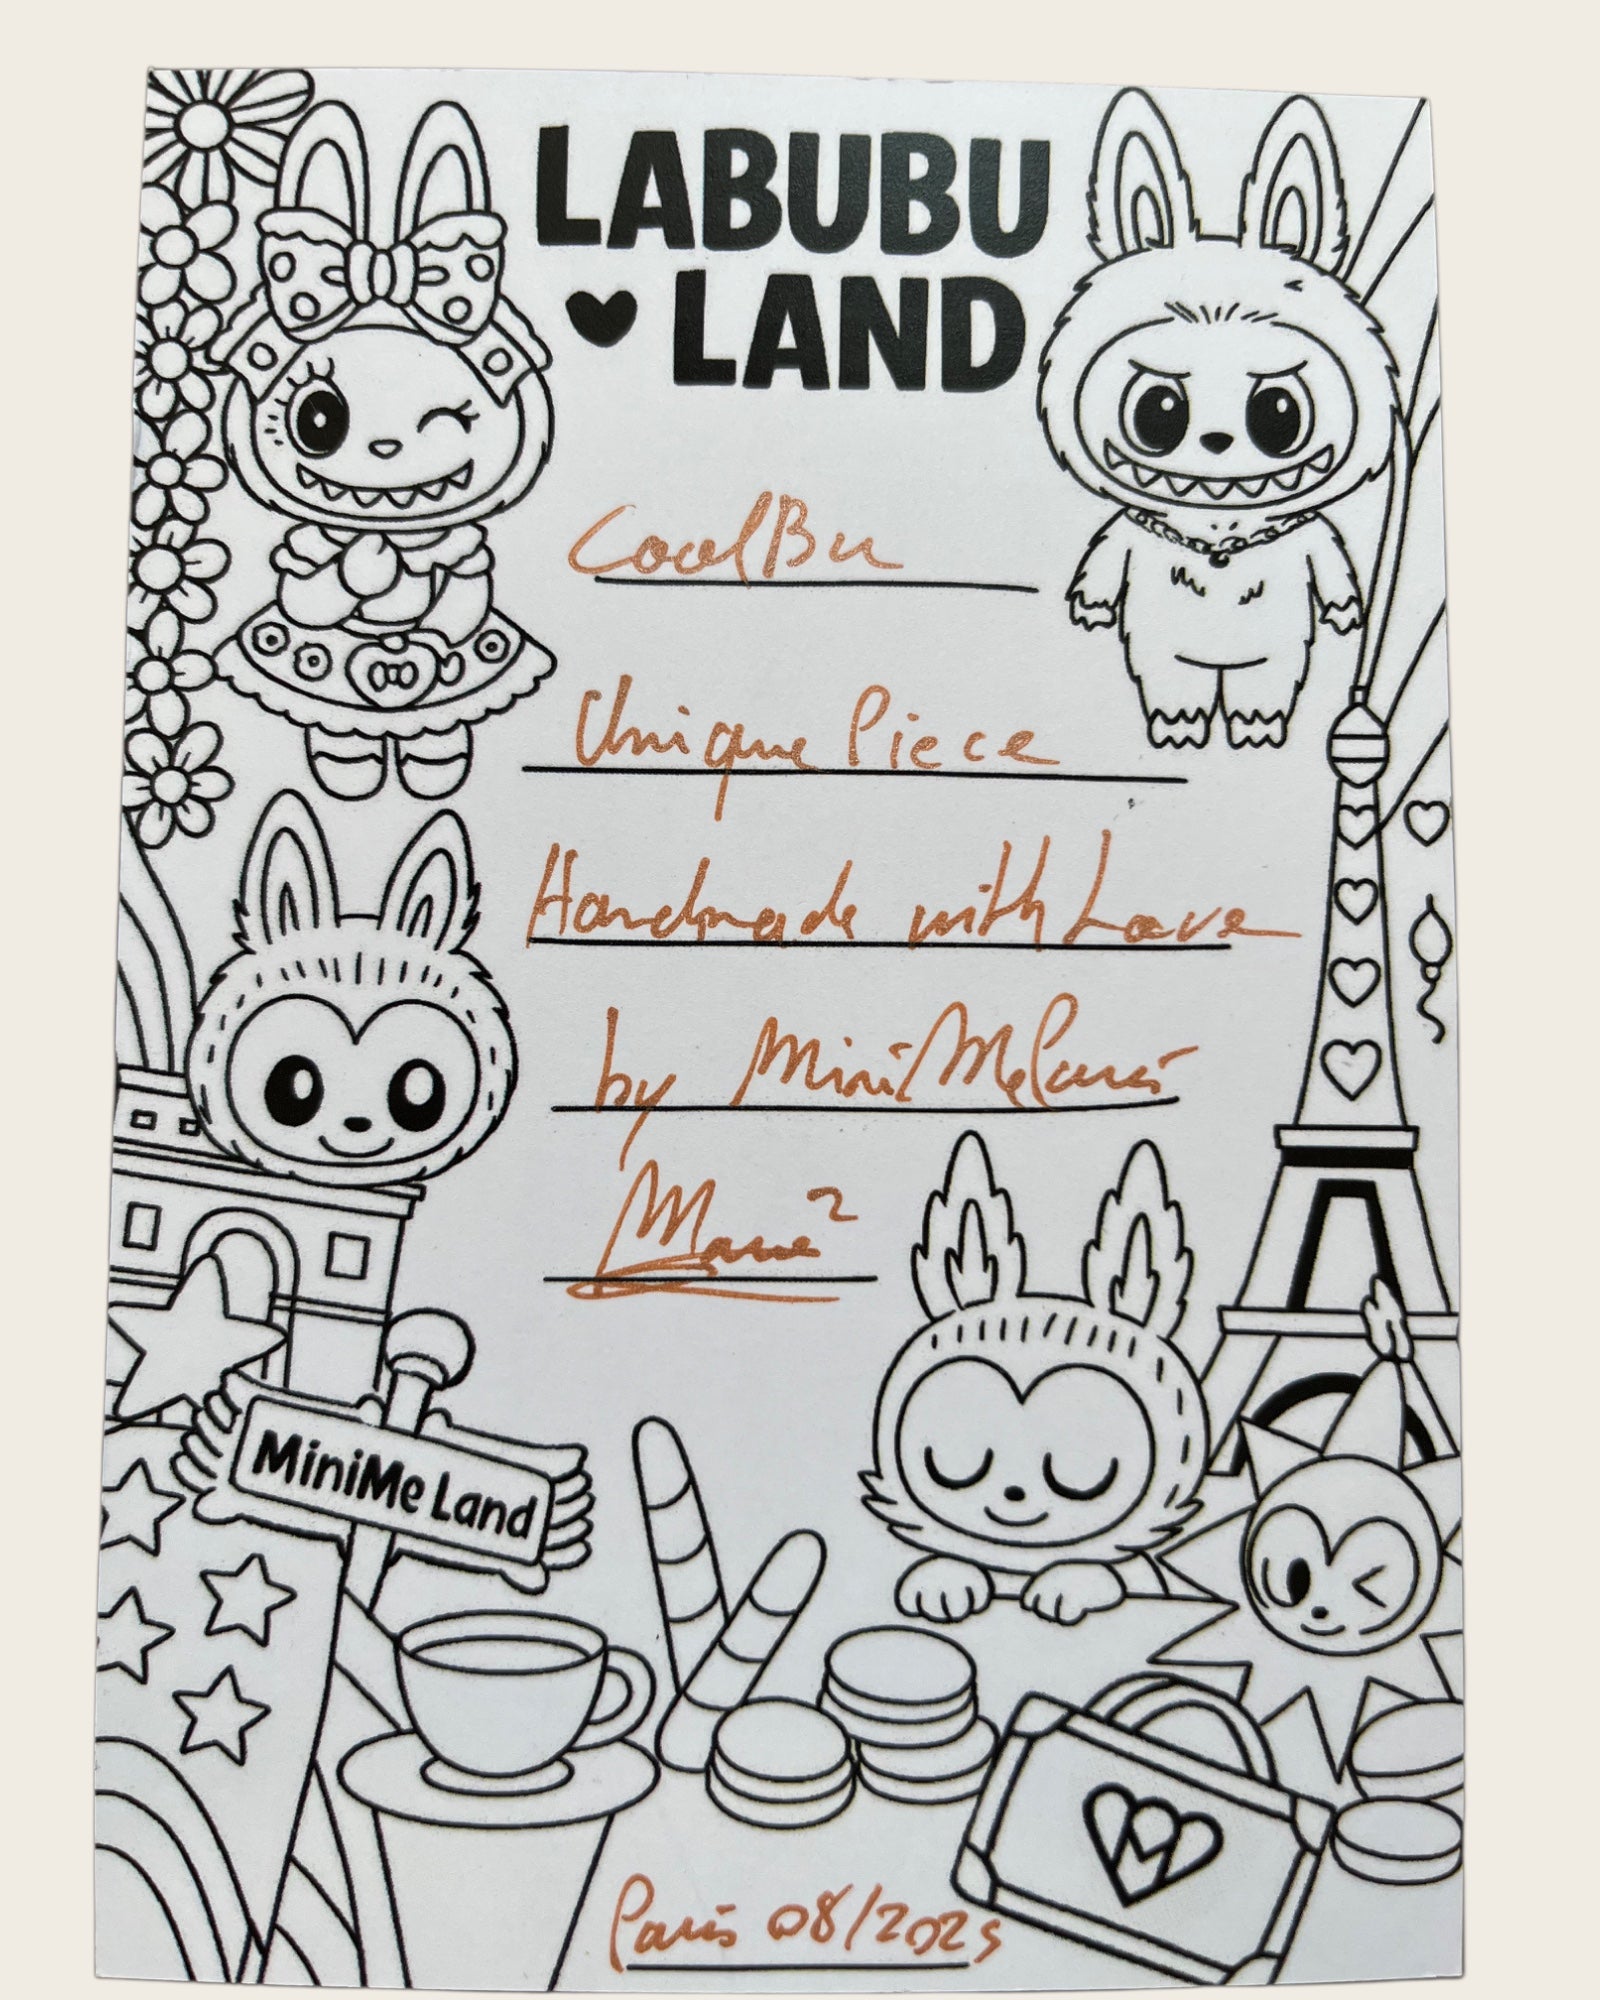 LABUBU
LAND
CoolBu
Unique Piece
Handmade with Love
by MiniMeParis
Paris 08/2025
MiniMe Land